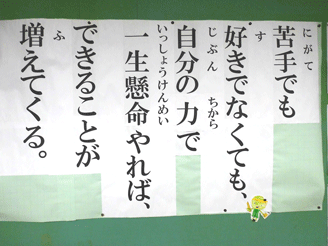 苦手でも
にがて
好きでなくても、
す
自分の力で
じぶん ちから
一生懸命やれば、
いっしょうけんめい
できることが
増えてくる。
ふ